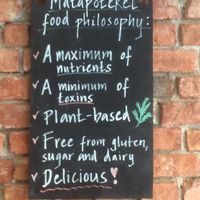 Matapoteket
food philosophy:
✓ A maximum of
nutrients
✓ A minimum of
toxins
✓ Plant-based
✓ Free from gluten,
sugar and dairy
✓ Delicious!